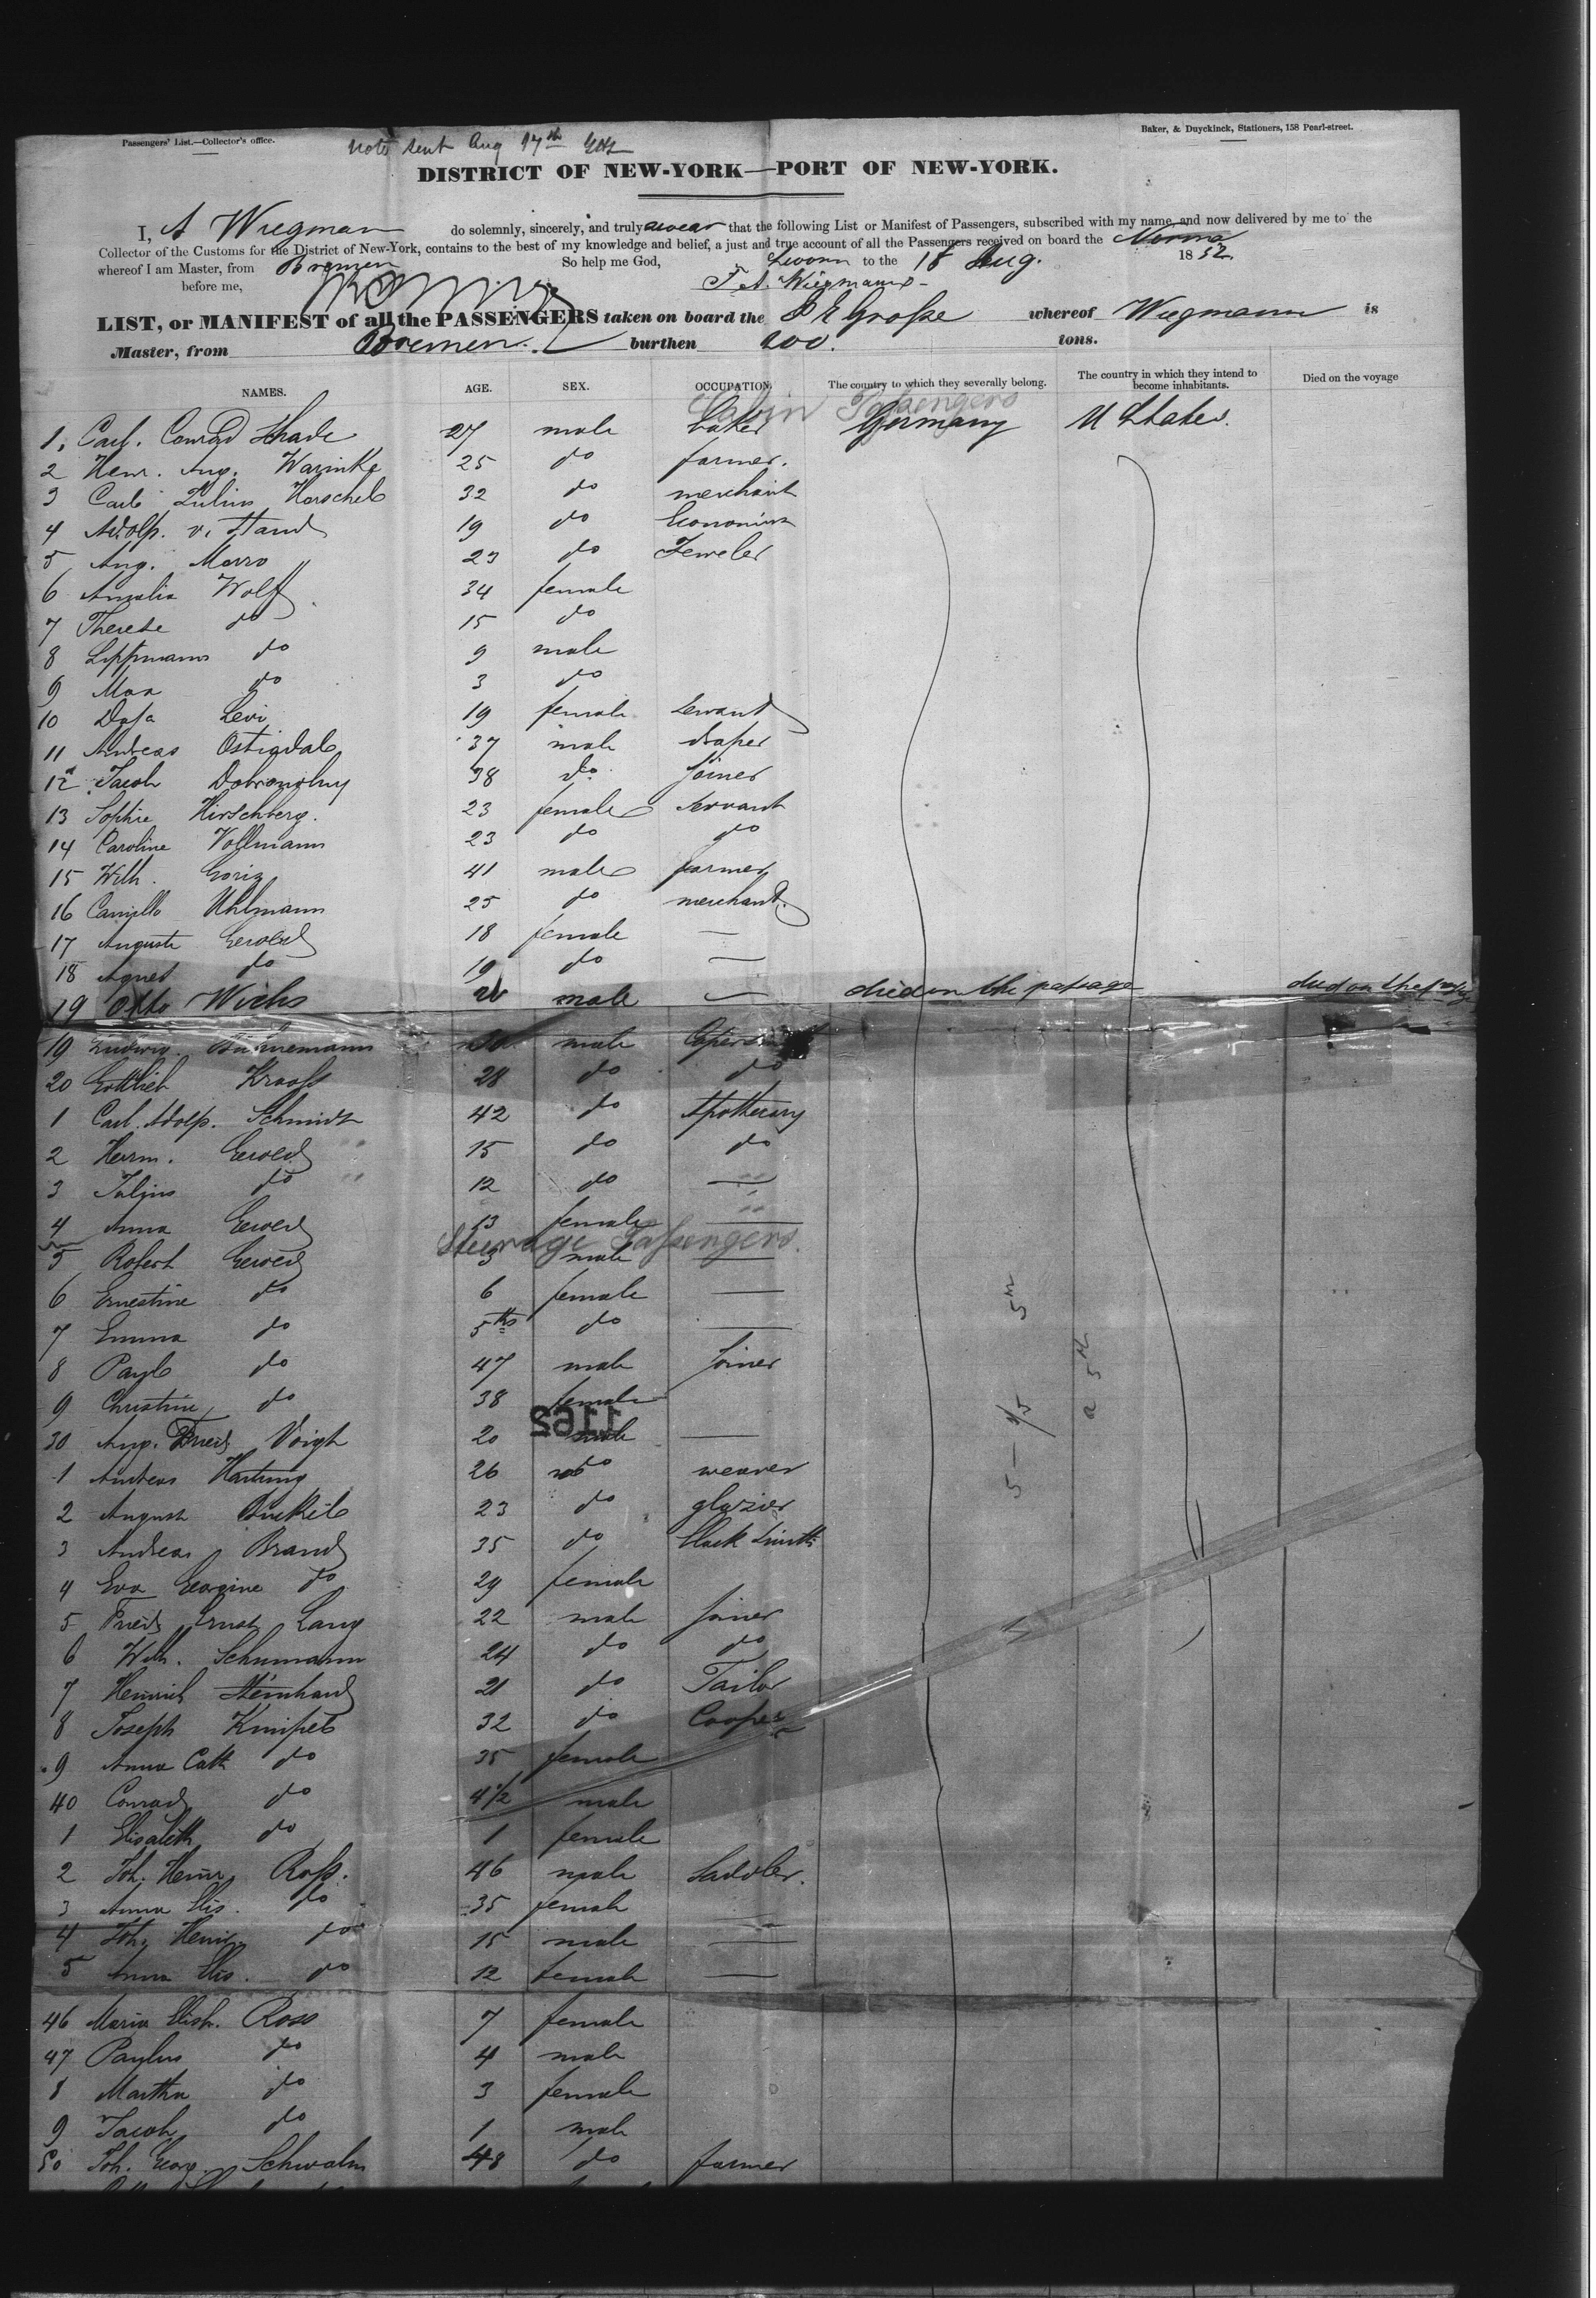 Passengers' List.—Collector's office.
Note sent Aug 17th
Baker, & Duyckinck, Stationers, 158 Pearl-street.
DISTRICT OF NEW-YORK—PORT OF NEW-YORK.
I, A Wiegman do solemnly, sincerely, and truly swear that the following List or Manifest of Passengers, subscribed with my name, and now delivered by me to the
Collector of the Customs for the District of New-York, contains to the best of my knowledge and belief, a just and true account of all the Passengers received on board the
whereof I am Master, from Bremen So help me God, Sworn to the 18 Aug. 1852
before me, F A. Wiegmann
LIST, or MANIFEST of all the PASSENGERS taken on board the whereof Wiegmann is
Master, from Bremen. burthen 200. tons.
NAMES. AGE. SEX. OCCUPATION. The country to which they severally belong. The country in which they intend to become inhabitants. Died on the voyage
Cabin Passengers
1. Carl. Conrad Shade 27 male baker Germany U States.
2 Henr. Aug. Warinke 25 do farmer.
3 Carl Julius Horschel 32 do merchant
4 Adolp. v. 19 do
5 Aug. Morro 23 do Jeweler
6 Amalia Wolff 34 female
7 Therese do 15 do
8 Lippmann do 9 male
9 Max do 3 do
10 Levi 19 female
11 Andreas 37 male draper
12 Jacob 38 do joiner
13 Sophie Hirschberg. 23 female servant
14 Caroline Vollmann 23 do do
15 Wilh. 41 male farmer
16 Camillo Uhlmann 25 do merchant.
17 Auguste 18 female —
18 Agnes do 19 do —
19 Otto Wichs male — died on the passage died on the
19 Ludwig. male
20 Gottlieb 28 do do
1 Carl. Adolp. Schmidt 42 do Apothecary
2 Herm. 15 do do
3 Julius do 12 do —
4 Anna 13 female —
Steerage Passengers.
5 Robert 3 male —
6 Ernestine do 6 female —
7 Emma do do —
8 do 47 male joiner
9 Christine do 38 female
1162
30 Aug. Voigt 20 male —
1 Andreas Hartung 26 do weaver
2 August 23 do glazier
3 Andreas Brand 35 do black smith
4 Eva Georgine do 29 female
5 Ernst Lang 22 male joiner
6 Wilh. Schumann 24 do do
7 Heinrich Steinhard 21 do Tailor
8 Joseph Knipel 32 do Cooper
9 Anna Cath do 35 female
40 Conrad do 4 1/2 male
1 Elisabeth do 1 female
2 Joh. Henr. Ross. 46 male Saddler.
3 Anna Elis. do 35 female
4 Joh. Henr. do 15 male —
5 Anna Elis. do 12 female —
46 Maria Elisb. Ross 7 female
47 Paulus do 4 male
8 Martha do 3 female
9 Jacob do 1 male
50 Joh. Georg. Schwalm 48 do farmer